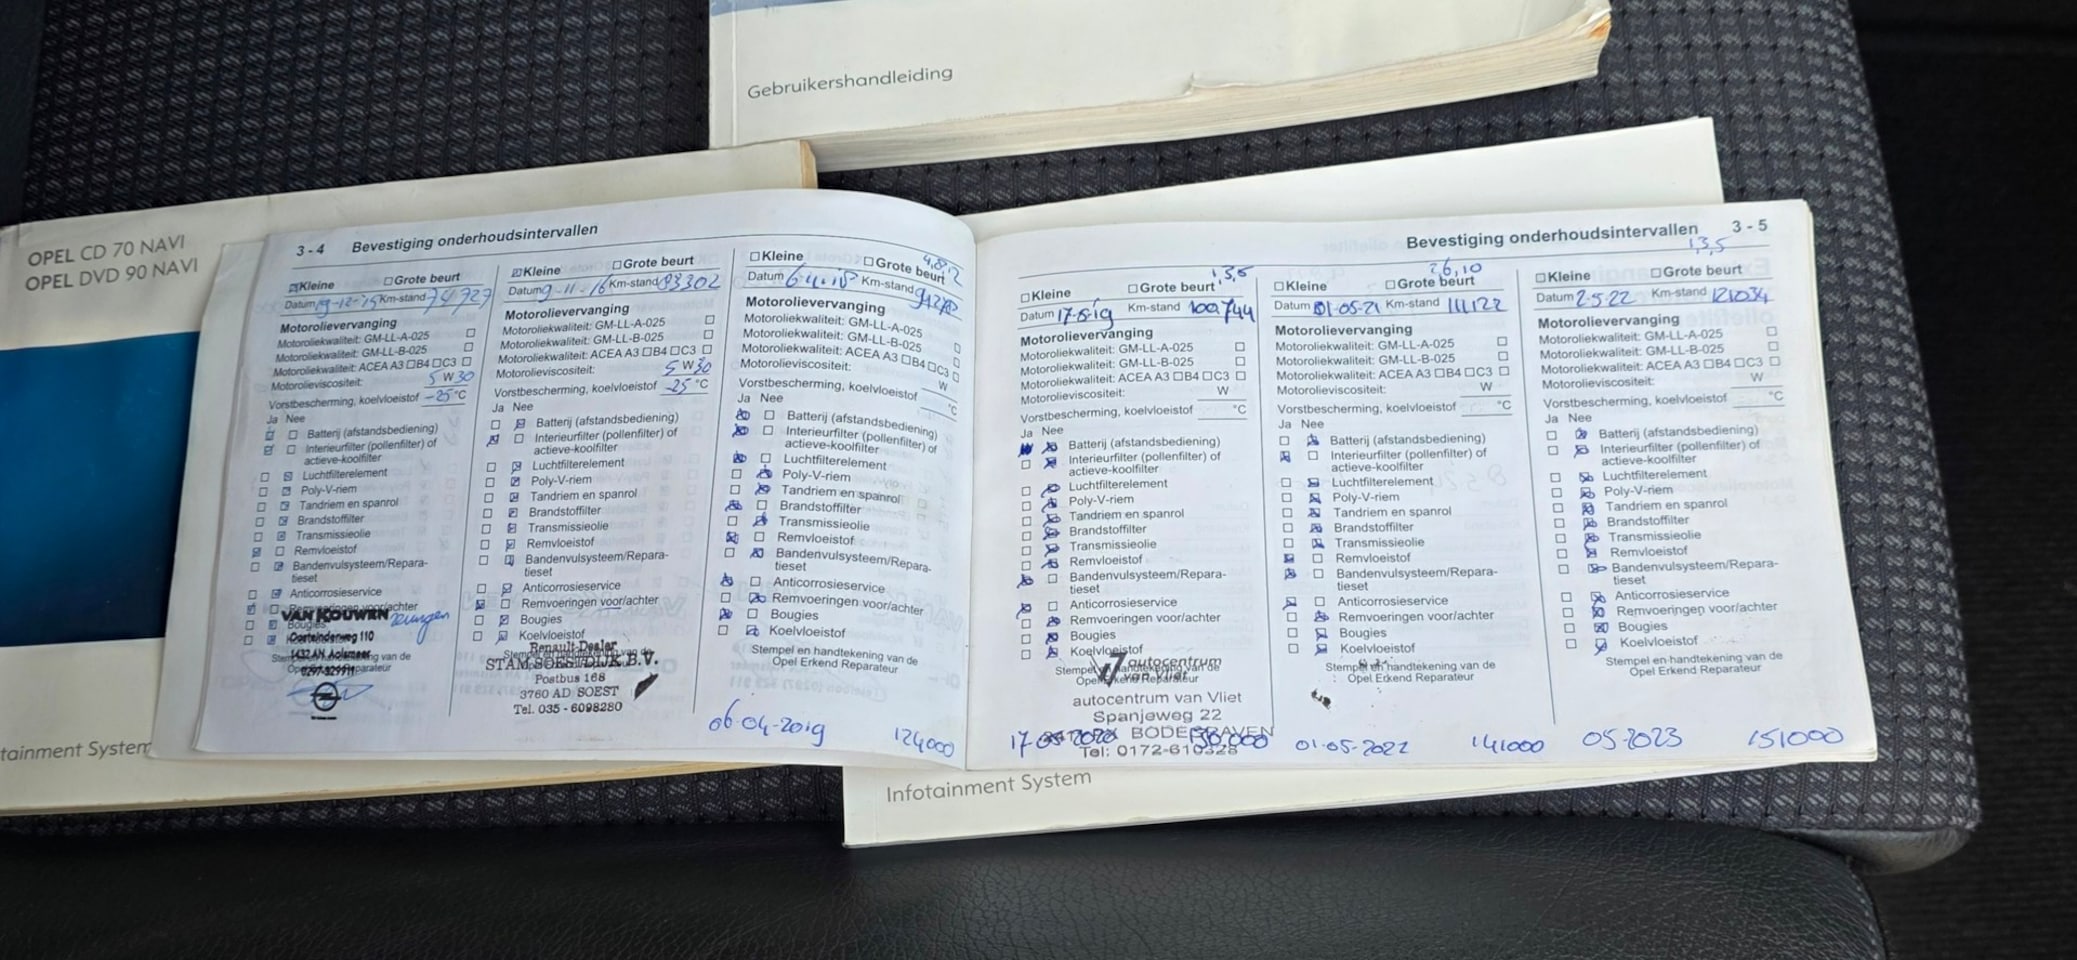 Gebruikershandleiding
OPEL CD 70 NAVI
OPEL DVD 90 NAVI
tainment System
3 - 4 Bevestiging onderhoudsintervallen
Kleine Grote beurt
Datum 19-12-15 Km-stand 74727
Motorolievervanging
Motoroliekwaliteit: GM-LL-A-025
Motoroliekwaliteit: GM-LL-B-025
Motoroliekwaliteit: ACEA A3 B4 C3
Motorolieviscositeit: 5 W 30
Vorstbescherming, koelvloeistof -25 °C
Ja Nee
Batterij (afstandsbediening)
Interieurfilter (pollenfilter) of
actieve-koolfilter
Luchtfilterelement
Poly-V-riem
Tandriem en spanrol
Brandstoffilter
Transmissieolie
Remvloeistof
Bandenvulsysteem/Repara-
tieset
Anticorrosieservice
Remvoeringen voor/achter
VAN KOUWEN
Bougies
Oosteinderweg 110
1432 AN Aalsmeer
0297-329911
Kleine Grote beurt
Datum 9-11-16 Km-stand 83302
Motorolievervanging
Motoroliekwaliteit: GM-LL-A-025
Motoroliekwaliteit: GM-LL-B-025
Motoroliekwaliteit: ACEA A3 B4 C3
Motorolieviscositeit: 5 W 30
Vorstbescherming, koelvloeistof -25 °C
Ja Nee
Batterij (afstandsbediening)
Interieurfilter (pollenfilter) of
actieve-koolfilter
Luchtfilterelement
Poly-V-riem
Tandriem en spanrol
Brandstoffilter
Transmissieolie
Remvloeistof
Bandenvulsysteem/Repara-
tieset
Anticorrosieservice
Remvoeringen voor/achter
Bougies
Koelvloeistof
Renault-Dealer
STAM SOESTDIJK B.V.
Postbus 168
3760 AD SOEST
Tel. 035 - 6098280
4,8,12
Kleine Grote beurt
Datum 6-4-18 Km-stand
Motorolievervanging
Motoroliekwaliteit: GM-LL-A-025
Motoroliekwaliteit: GM-LL-B-025
Motoroliekwaliteit: ACEA A3 B4 C3
Motorolieviscositeit: W
Vorstbescherming, koelvloeistof °C
Ja Nee
Batterij (afstandsbediening)
Interieurfilter (pollenfilter) of
actieve-koolfilter
Luchtfilterelement
Poly-V-riem
Tandriem en spanrol
Brandstoffilter
Transmissieolie
Remvloeistof
Bandenvulsysteem/Repara-
tieset
Anticorrosieservice
Remvoeringen voor/achter
Bougies
Koelvloeistof
Stempel en handtekening van de
Opel Erkend Reparateur
06-04-2019 124000
Bevestiging onderhoudsintervallen 3 - 5
1,3,5
Kleine Grote beurt
Datum 17-5-19 Km-stand 100744
Motorolievervanging
Motoroliekwaliteit: GM-LL-A-025
Motoroliekwaliteit: GM-LL-B-025
Motoroliekwaliteit: ACEA A3 B4 C3
Motorolieviscositeit: W
Vorstbescherming, koelvloeistof °C
Ja Nee
Batterij (afstandsbediening)
Interieurfilter (pollenfilter) of
actieve-koolfilter
Luchtfilterelement
Poly-V-riem
Tandriem en spanrol
Brandstoffilter
Transmissieolie
Remvloeistof
Bandenvulsysteem/Repara-
tieset
Anticorrosieservice
Remvoeringen voor/achter
Bougies
Koelvloeistof
autocentrum
van Vliet
autocentrum van Vliet
Spanjeweg 22
BODEGRAVEN
Tel: 0172-610328
2,6,10
Kleine Grote beurt
Datum 01-05-21 Km-stand 111122
Motorolievervanging
Motoroliekwaliteit: GM-LL-A-025
Motoroliekwaliteit: GM-LL-B-025
Motoroliekwaliteit: ACEA A3 B4 C3
Motorolieviscositeit: W
Vorstbescherming, koelvloeistof °C
Ja Nee
Batterij (afstandsbediening)
Interieurfilter (pollenfilter) of
actieve-koolfilter
Luchtfilterelement
Poly-V-riem
Tandriem en spanrol
Brandstoffilter
Transmissieolie
Remvloeistof
Bandenvulsysteem/Repara-
tieset
Anticorrosieservice
Remvoeringen voor/achter
Bougies
Koelvloeistof
Stempel en handtekening van de
Opel Erkend Reparateur
01-05-2022 141000
1,3,5
Kleine Grote beurt
Datum 2-5-22 Km-stand 121034
Motorolievervanging
Motoroliekwaliteit: GM-LL-A-025
Motoroliekwaliteit: GM-LL-B-025
Motoroliekwaliteit: ACEA A3 B4 C3
Motorolieviscositeit: W
Vorstbescherming, koelvloeistof °C
Ja Nee
Batterij (afstandsbediening)
Interieurfilter (pollenfilter) of
actieve-koolfilter
Luchtfilterelement
Poly-V-riem
Tandriem en spanrol
Brandstoffilter
Transmissieolie
Remvloeistof
Bandenvulsysteem/Repara-
tieset
Anticorrosieservice
Remvoeringen voor/achter
Bougies
Koelvloeistof
Stempel en handtekening van de
Opel Erkend Reparateur
05-2023 151000
Infotainment System